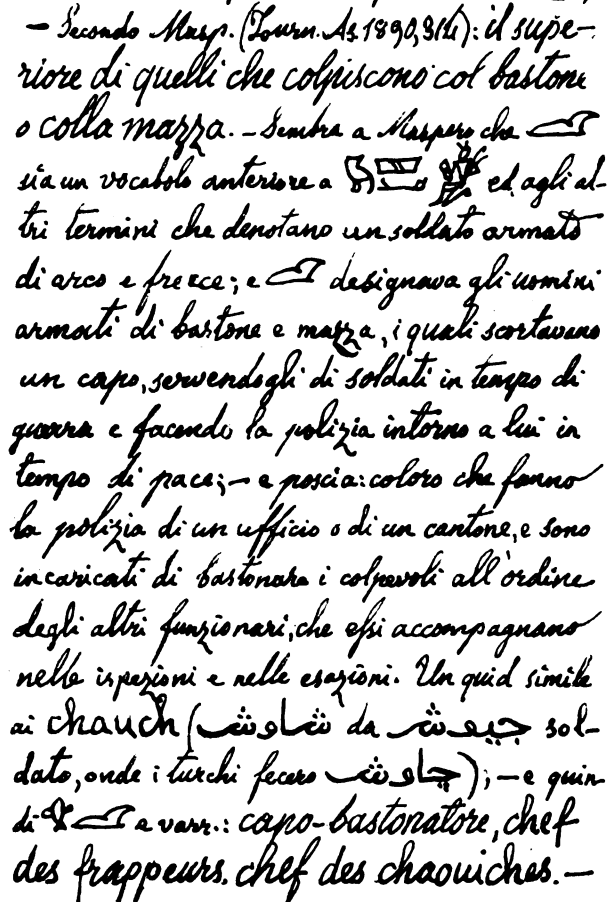 — Secondo Masp. (Journ. As. 1890, 314): il supe-
riore di quelli che colpiscono col bastone
o colla mazza. — Sembra a Maspero che
sia un vocabolo anteriore a ed agli al-
tri termini che denotano un soldato armato
di arco e frecce; e designava gli uomini
armati di bastone e mazza, i quali scortavano
un capo, servendogli di soldati in tempo di
guerra e facendo la polizia intorno a lui in
tempo di pace; — e poscia: coloro che fanno
la polizia di un ufficio o di un cantone, e sono
incaricati di bastonare i colpevoli all'ordine
degli altri funzionari, che essi accompagnano
nelle ispezioni e nelle esazioni. Un quid simile
ai chauch (شاوش da جيوش sol-
dato, onde i turchi fecero چاوش); — e quin
di e varr.: capo-bastonatore, chef
des frappeurs. chef des chaouiches. —